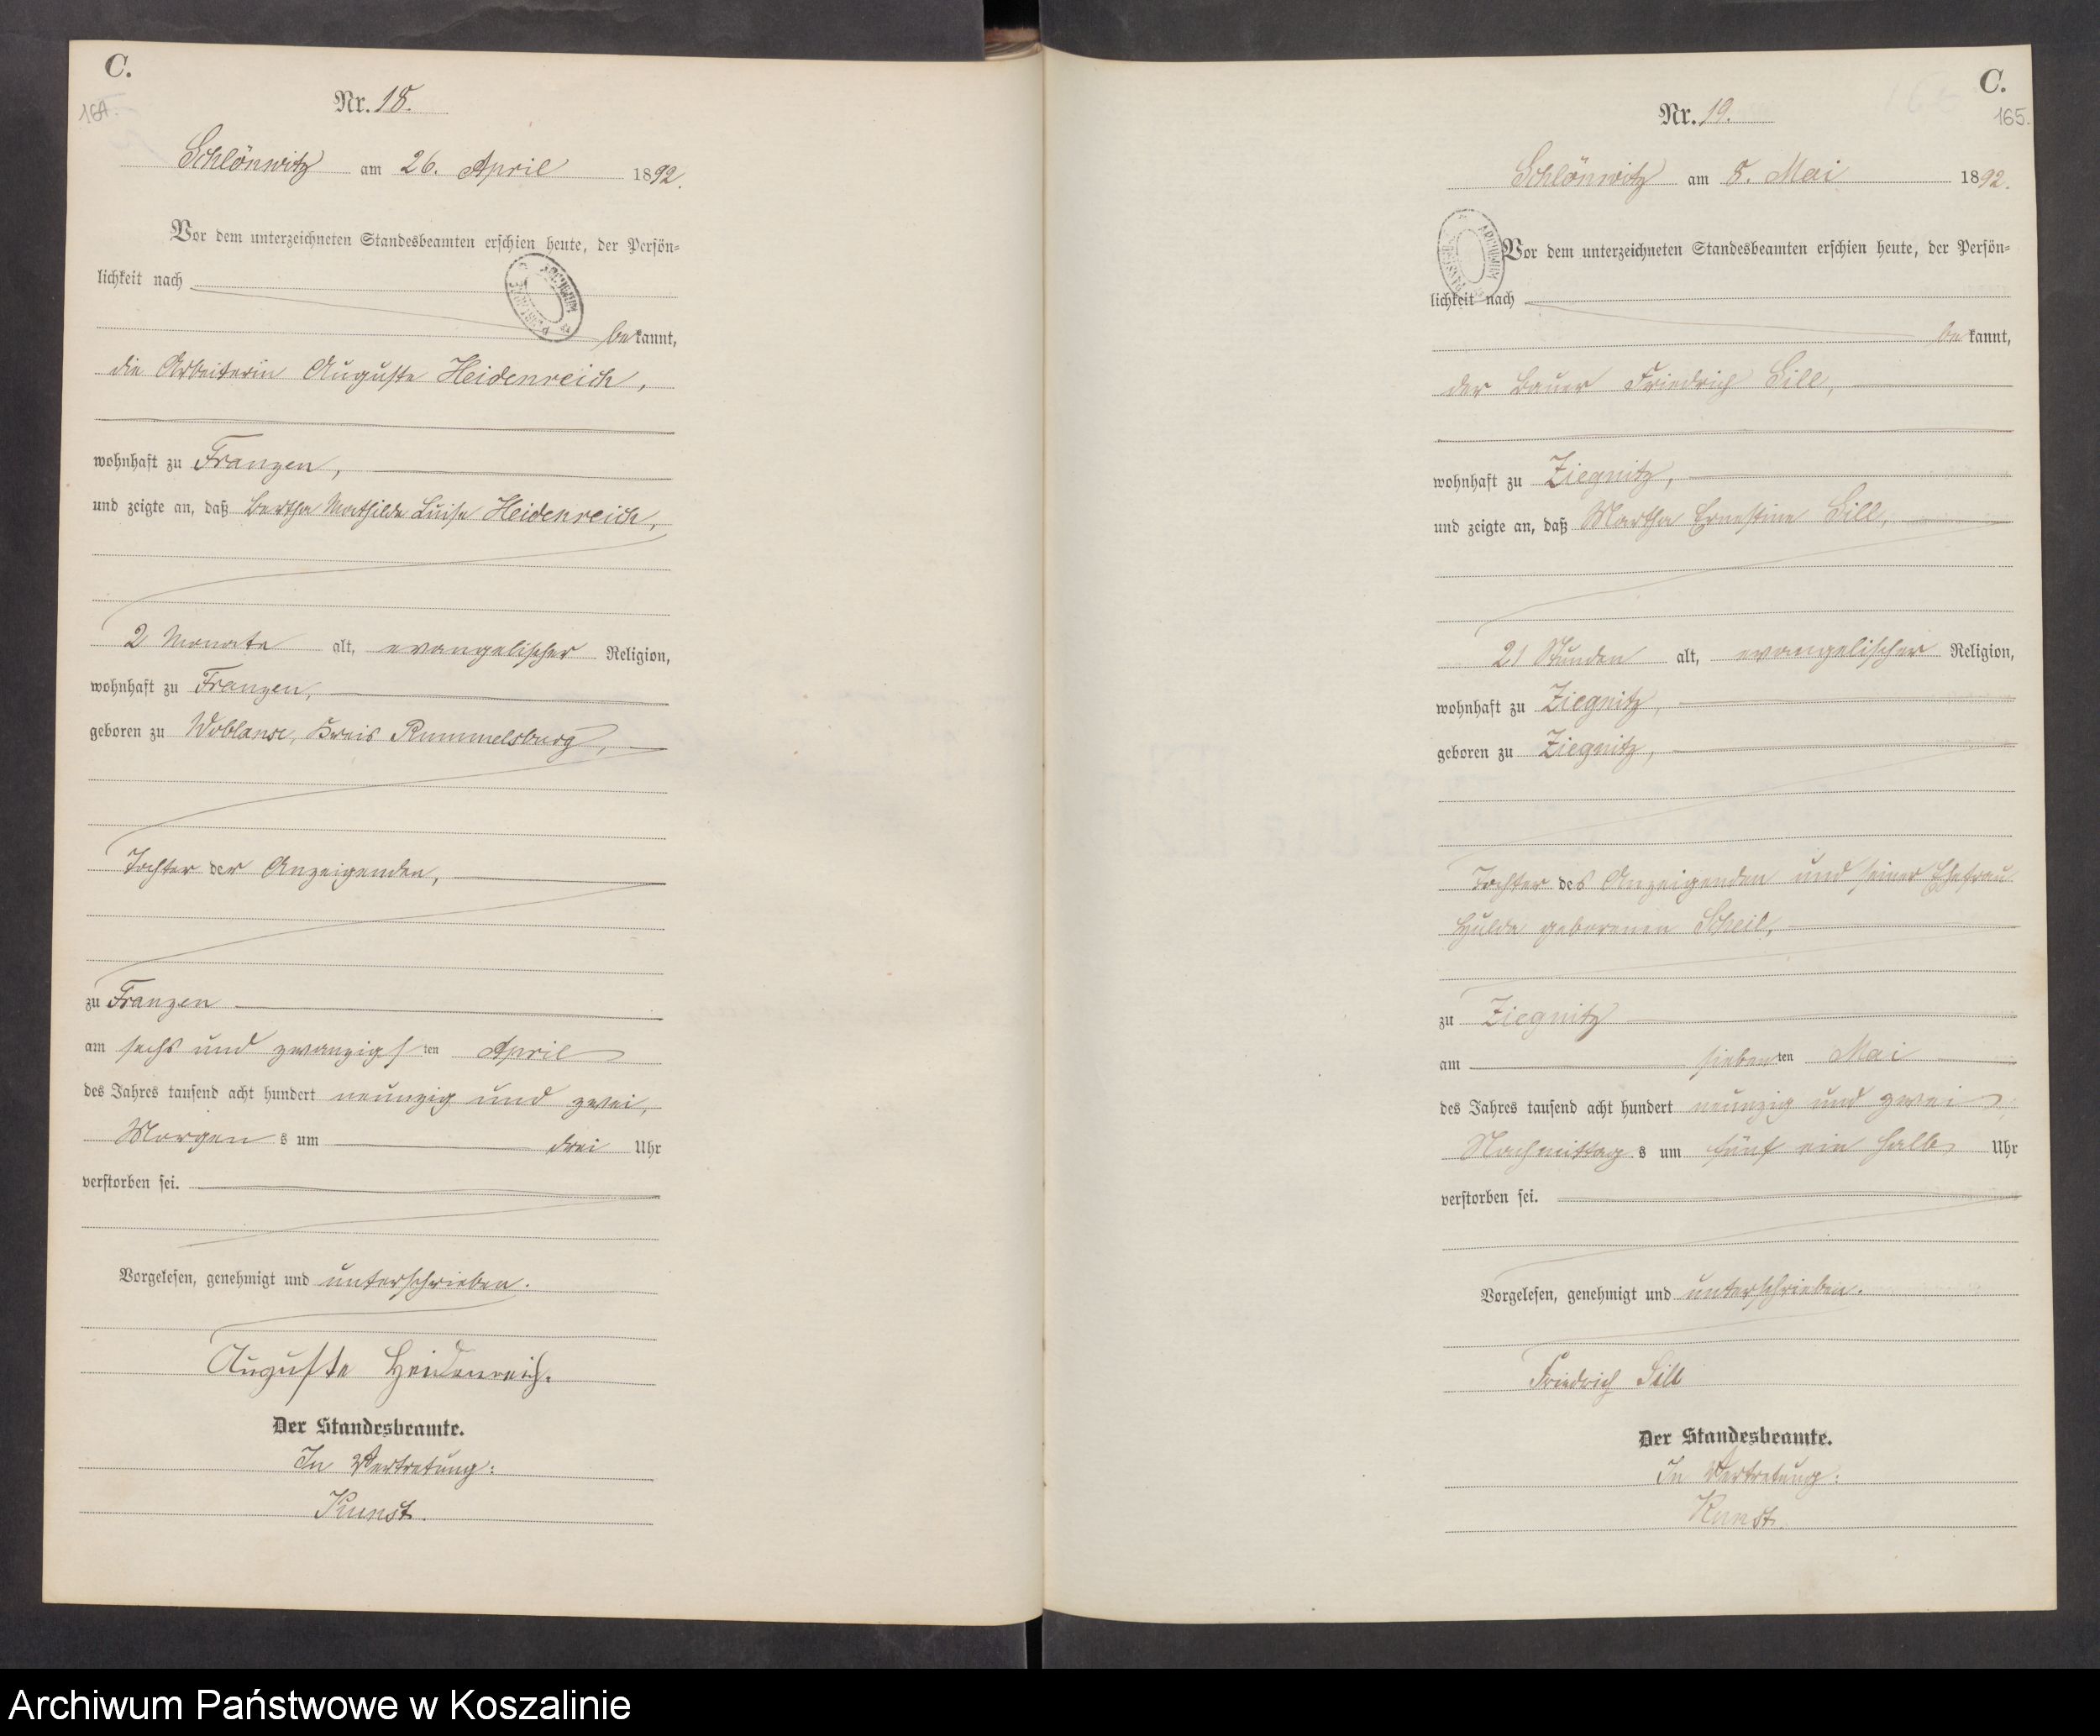 C.
164.
Nr. 18.
Schlönwitz am 26. April 1892.
Vor dem unterzeichneten Standesbeamten erschien heute, der Persön-
lichkeit nach
bekannt,
die Arbeiterin Auguste Heidenreich,
wohnhaft zu Franzen,
und zeigte an, daß Bertha Mathilde Luise Heidenreich,
2 Monate alt, evangelischer Religion,
wohnhaft zu Franzen,
geboren zu Woblanse, Kreis Rummelsburg,
Tochter der Anzeigenden,
zu Franzen
am sechs und zwanzigsten April
des Jahres tausend acht hundert neunzig und zwei,
Morgens um drei Uhr
verstorben sei.
Vorgelesen, genehmigt und unterschrieben.
Auguste Heidenreich.
Der Standesbeamte.
In Vertretung:
Kunst.
C.
165.
Nr. 19.
Schlönwitz am 8. Mai 1892.
Vor dem unterzeichneten Standesbeamten erschien heute, der Persön-
lichkeit nach
bekannt,
der Bauer Friedrich Sill,
wohnhaft zu Ziegnitz,
und zeigte an, daß Martha Ernestine Sill,
21 Stunden alt, evangelischer Religion,
wohnhaft zu Ziegnitz,
geboren zu Ziegnitz,
Tochter des Anzeigenden und seiner Ehefrau
Hulda geborenen Scheil,
zu Ziegnitz
am siebenten Mai
des Jahres tausend acht hundert neunzig und zwei
Nachmittags um fünf ein halb Uhr
verstorben sei.
Vorgelesen, genehmigt und unterschrieben.
Friedrich Sill
Der Standesbeamte.
In Vertretung:
Kunst.
Archiwum Państwowe w Koszalinie